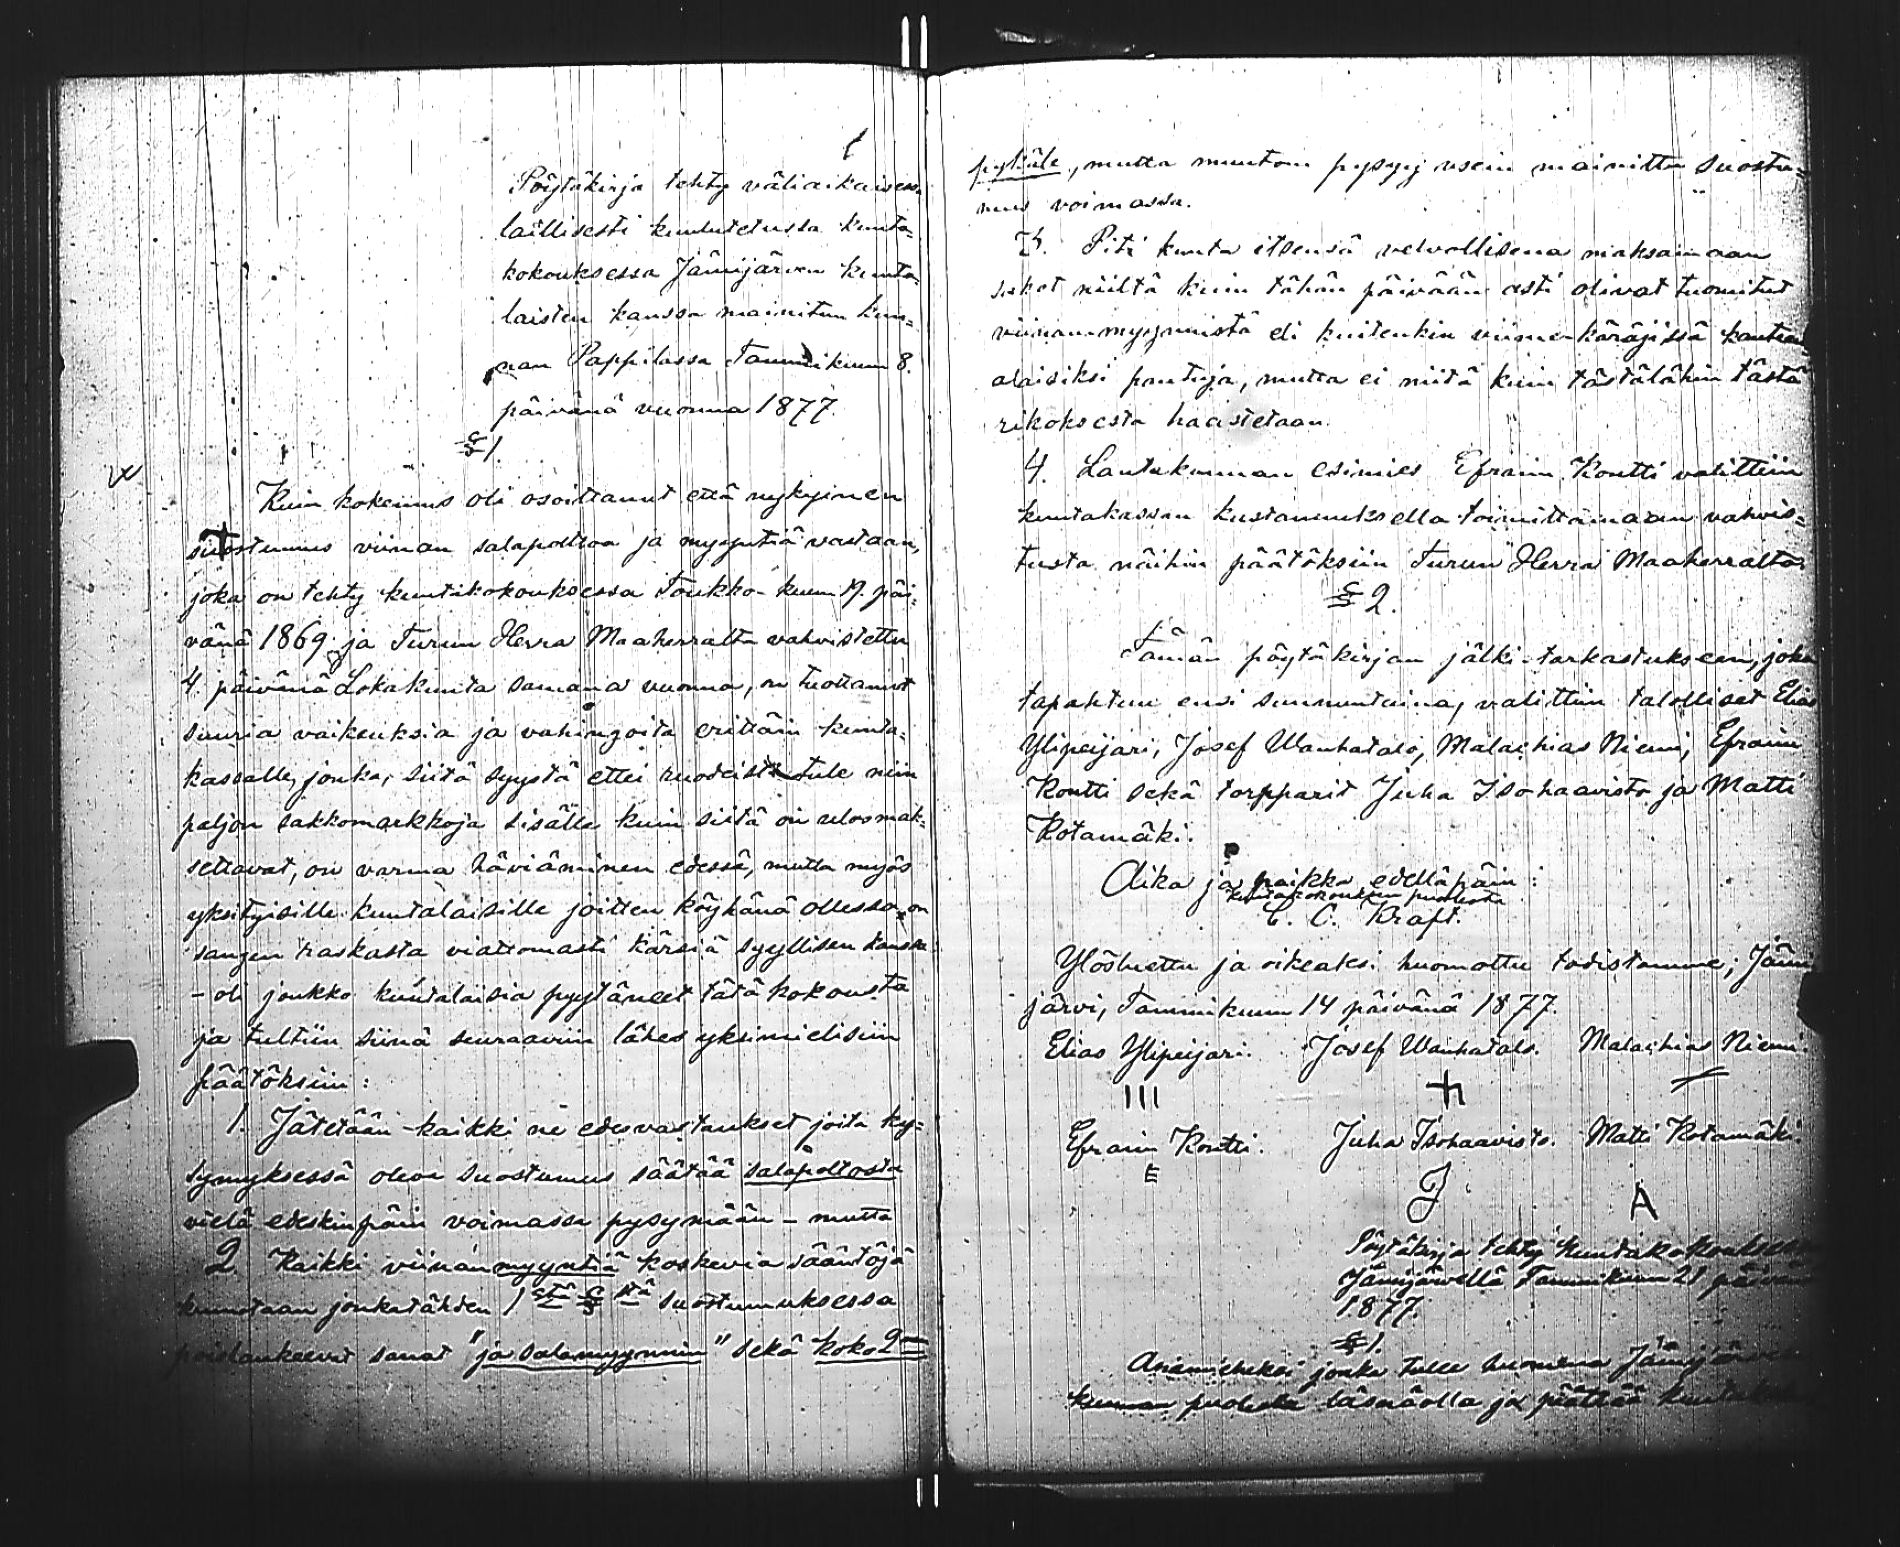 Pöytäkirja tehty väliaikaisessa
laillisesti kuulutetussa kunta-
kokouksessa Jämijärven kunta-
laisten kanssa mainitun kun-
nan Pappilassa Tammikuun 8.
päivänä vuonna 1877.
§ 1
Kuin kokemus oli osoittanut että nykyinen
suostumus viinan salapolttoa ja myyntiä vastaan,
joka on tehty kuntakokouksessa Toukko-kuun 19. päi-
vänä 1869 ja Turun Herra Maaherralta vahvistettu
4. päivänä Lokakuuta samana vuonna, on tuottanut
suuria vaikeuksia ja vahingoita erittäin kunta-
kassalle, jonka, siitä syystä ettei ruodeista tule niin
paljon sakkomarkkoja sisälle kuin siitä on ulosmak-
settavat, on varma häviäminen edessä, mutta myös
yksityisille kuntalaisille joitten köyhänä ollessa on
sangen raskasta viattomasti kärsiä syyllisen kanssa
- oli joukko kuntalaisia pyytäneet tätä kokousta
ja tultiin siinä seuraaviin lähes yksimielisiin
päätöksiin:
1. Jätetään kaikki ne edesvastaukset joita ky-
symyksessä oleva suostumus säätää salapoltosta
vielä edeskinpäin voimassa pysymään - mutta
2. Kaikki viinanmyyntiä koskevia sääntöjä
kumotaan jonkatähden 1stä § stä suostumuksessa
poislankeevat sanat "ja salamyynnin" sekä koko 2
pykäle, mutta muutoin pysyy usein mainittu suostu-
mus voimassa.
3. Piti kunta itsensä velvollisena maksamaan
sakot niiltä kuin tähän päivään asti olivat tuomitut
viinanmyynnistä eli kuitenkin viime käräjissä kanteen
alaisiksi pantuja, mutta ei niitä kuin tästälähin tästä
rikoksesta haastetaan.
4. Lautakunnan esimies Efraim Kontti valittiin
kuntakassan kustannuksella toimittamaan vahvis-
tusta näihin päätöksiin Turun Herra Maaherralta.
§ 2.
Tämän pöytäkirjan jälki-tarkastukseen, joka
tapahtuu ensi sunnuntaina, valittiin talolliset Elias
Ylipeijari, Josef Wanhatalo, Malachias Niemi, Efraim
Kontti sekä torpparit Juha Isohaavisto ja Matti
Kotamäki.
Aika ja paikka edelläpäin:
kuntakokouksen puolesta
E. C. Kraft.
Ylösluettu ja oikeaksi huomattu todistamme; Jämi-
järvi, Tammikuun 14 päivänä 1877.
Elias Ylipeijari. Josef Wanhatalo. Malachias Niemi.
III
Efraim Kontti. Juha Isohaavisto. Matti Kotamäki.
E J A
Pöytäkirja tehty kuntakokouksessa
Jämijärvellä Tammikuun 21 päivänä
1877.
§ 1.
Asiamieheksi jonka tulee huomena Jämijärven
kunnan puolesta läsnäolla ja päättää